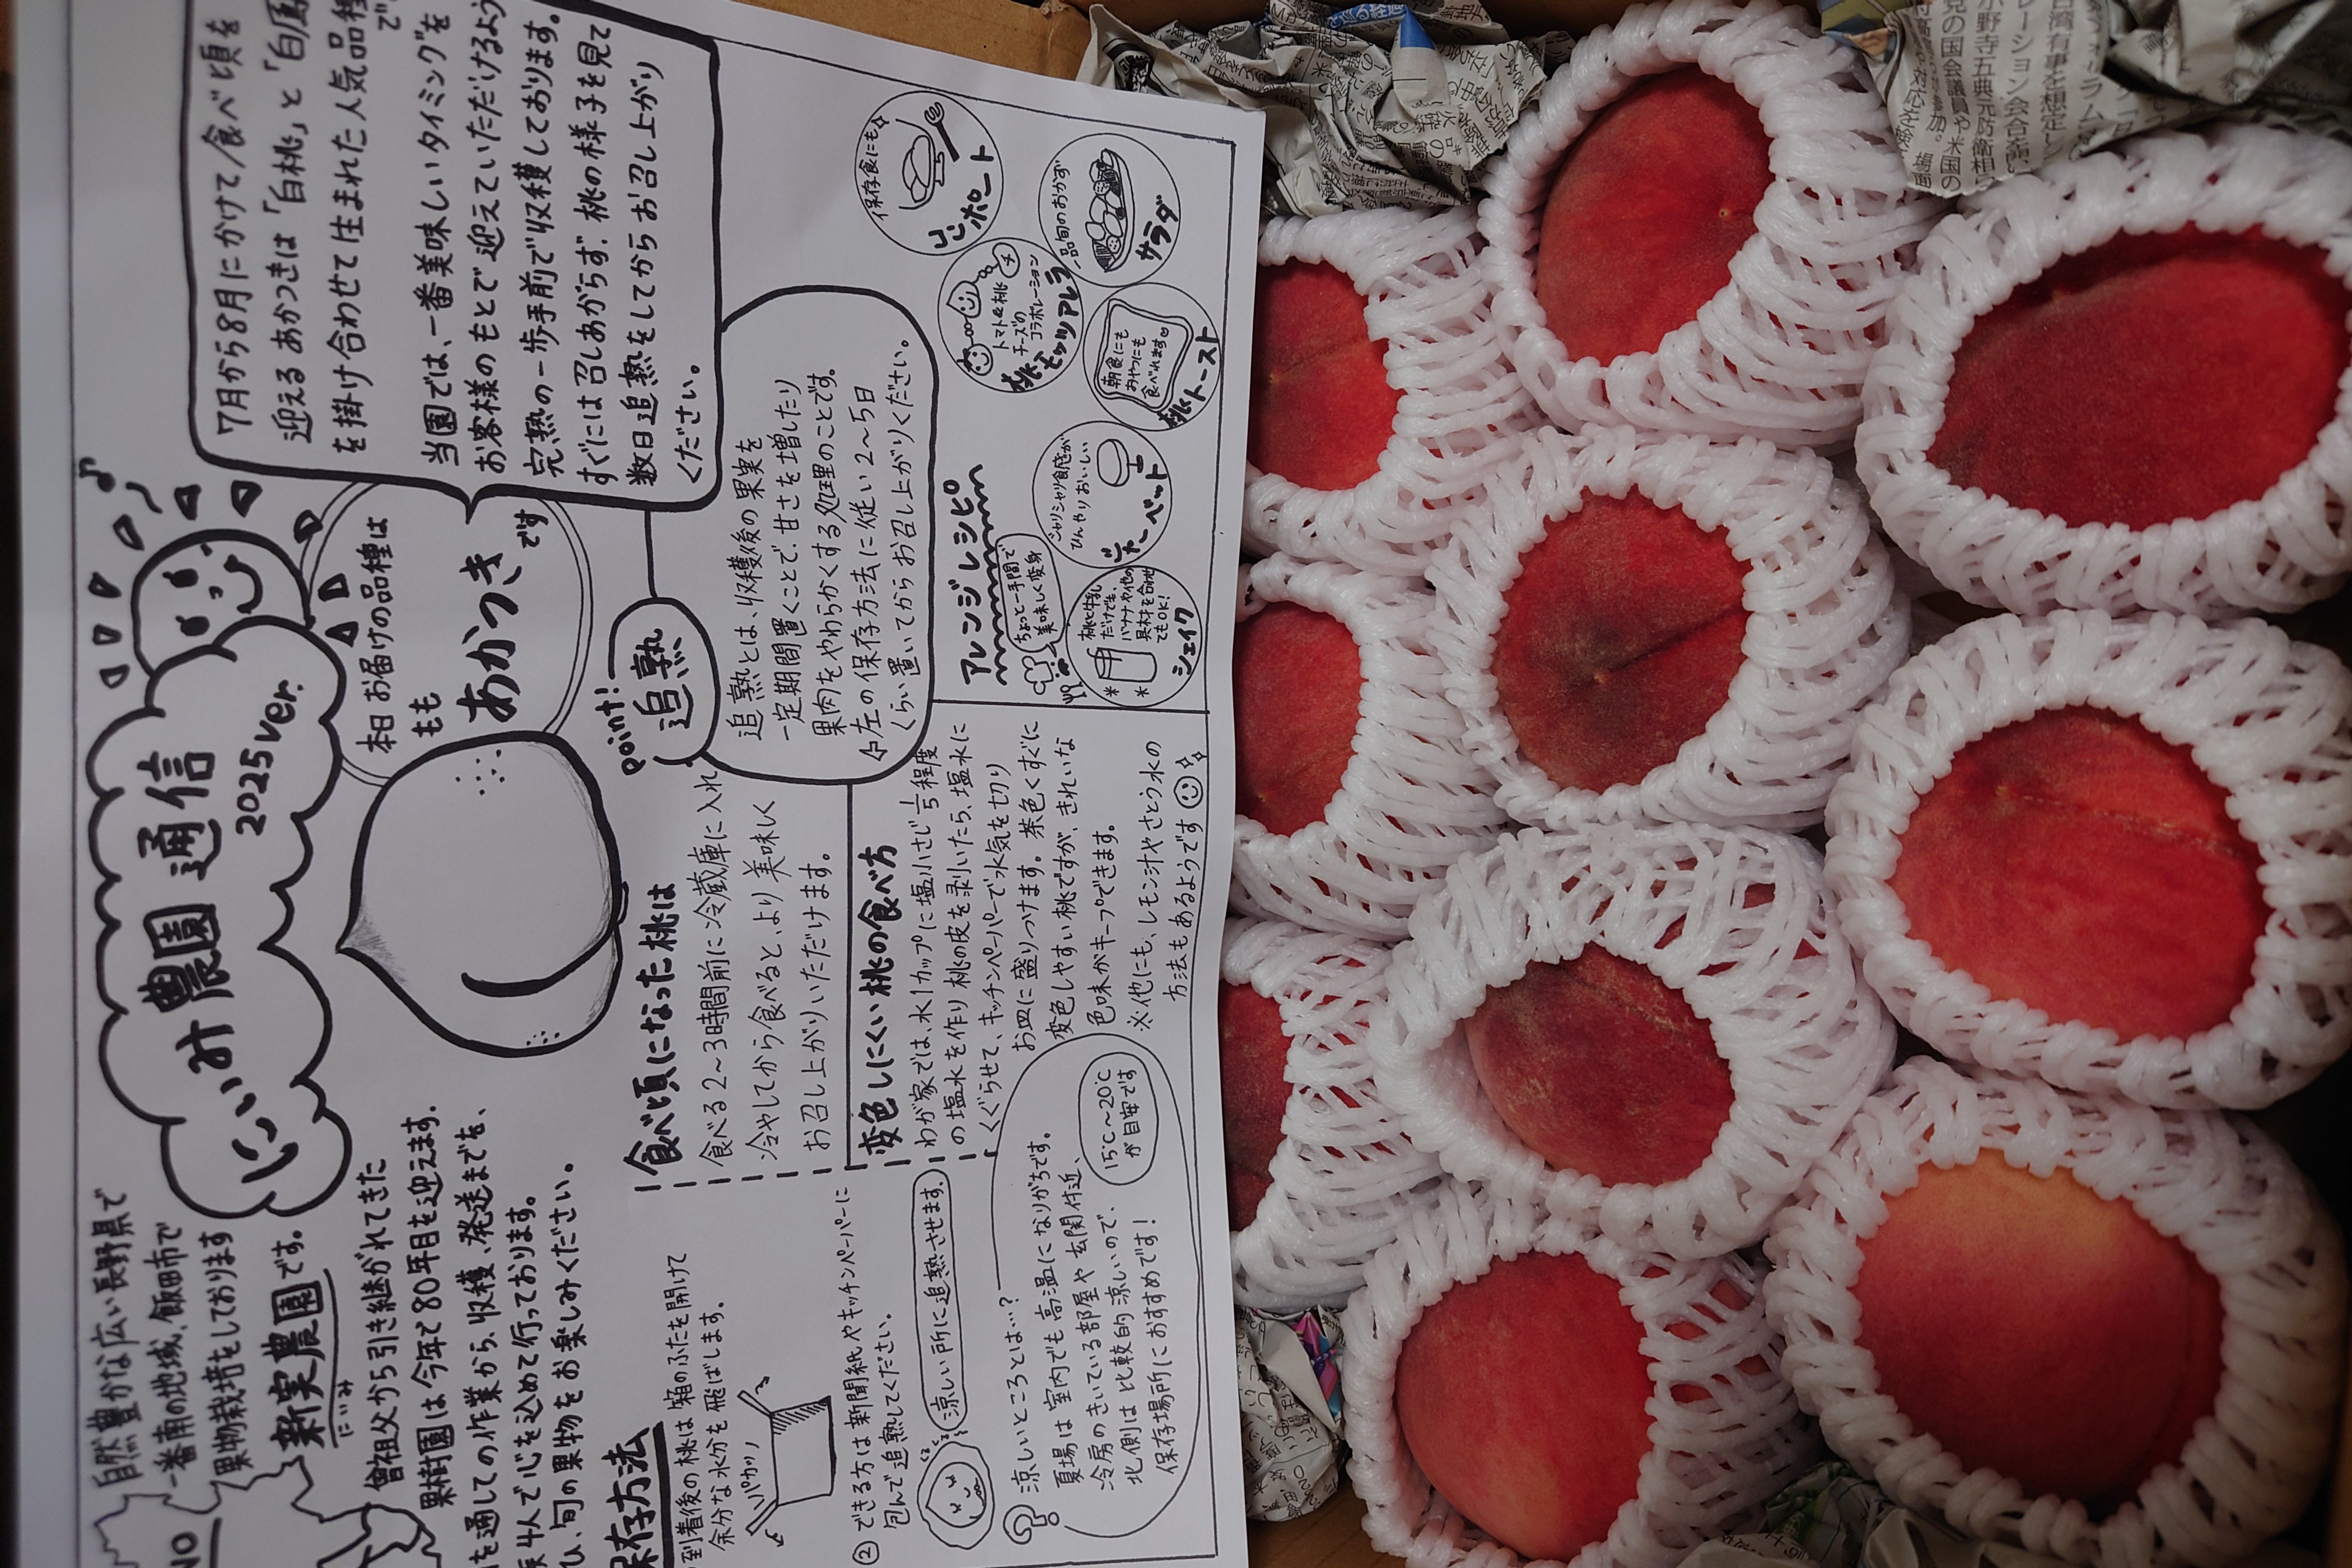 自然豊かな広い長野県で
一番南の地域、飯田市で
果物栽培をしております
新実農園です。
にいみ
曾祖父から引き継がれてきた
果樹園は今年で80年目を迎えます。
を通しての作業から、収穫、発送までを、
4人で心を込めて行っております。
旬の果物をお楽しみください。
にいみ農園通信
2025ver.
本日お届けの品種は
もも
あかつきです
7月から8月にかけて食べ頃を
迎えるあかつきは「白桃」と「白鳳」
を掛け合わせて生まれた人気品種で
当園では、一番美味しいタイミングを
お客様のもとで迎えていただけるよう
完熟の一歩手前で収穫しております。
すぐには召しあがらず、桃の様子を見て
数日追熟をしてからお召し上がり
ください。
保存方法
到着後の桃は箱のふたを開けて
余分な水分を飛ばします。
パカッ
②できる方は新聞紙やキッチンペーパーに
包んで追熟してください。
涼しい所に追熟させます。
涼しいところとは…?
夏場は室内でも高温になりがちです。
冷房のきいている部屋や玄関付近、
北側は比較的涼しいので、
保存場所におすすめです!
15℃〜20℃
が目安です
食べ頃になった桃は
食べる2〜3時間前に冷蔵庫に入れ
冷やしてから食べると、より美味しく
お召し上がりいただけます。
変色しにくい桃の食べ方
わが家では、水1カップに塩小さじ1/5程度
の塩水を作り桃の皮を剥いたら、塩水に
くぐらせて、キッチンペーパーで水気を切り
お皿に盛りつけます。茶色くすぐに
変色しやすい桃ですが、きれいな
色味がキープできます。
※他にも、レモン汁やさとう水の
方法もあるようです
point!
追熟
追熟とは、収穫後の果実を
一定期間置くことで、甘さを増したり
果肉をやわらかくする処理のことです。
左の保存方法に従い2〜5日
くらい置いてからお召し上がりください。
アレンジレシピ
ちょっと一手間で
美味しく変身
桃と牛乳
だけでも、
バナナや他の
具材を合わせ
てもOK!
シェイク
シャリシャリ食感が
ひんやりおいしい
シャーベット
朝食にも
おやつにも
食べれます
桃トースト
トマト&桃
チーズの
コラボレーション
桃モッツァレラ
一品旬のおかず
サラダ
保存食にも
コンポート